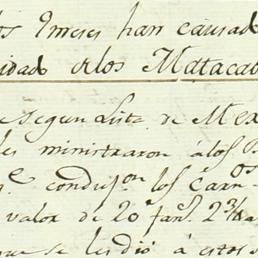 os Imeses han causad
idad de los Matacab
Segun Lista de Mex
les ministraron á los
q.e condujeron los Carn.os
valor de 20 fan.s 2 3/4
que se les dió á estos